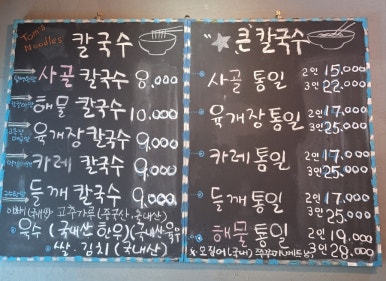 Tom's Noodles
칼국수
사골 칼국수 8,000
해물 칼국수 10,000
육개장 칼국수 9,000
카레 칼국수 9,000
들깨 칼국수 9,000
고추가루 (중국산, 국내산)
육수 (국내산 한우)(국내산 육우)
쌀. 김치 (국내산)
"큰" 칼국수
사골 통일 2인 15,000
3인 22,000
육개장 통일 2인 17,000
3인 25,000
카레 통일 2인 17,000
3인 25,000
들깨 통일 2인 17,000
3인 25,000
해물 통일 2인 19,000
오징어(국내) 쭈꾸미(베트남) 3인 28,000